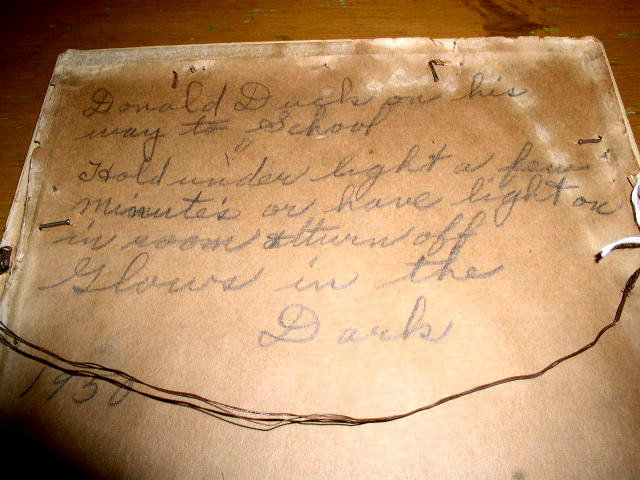 Donald Duck on his
way to School
Hold under light a few
minute's or have light on
in room & turn off
Glows in the
Dark
1950